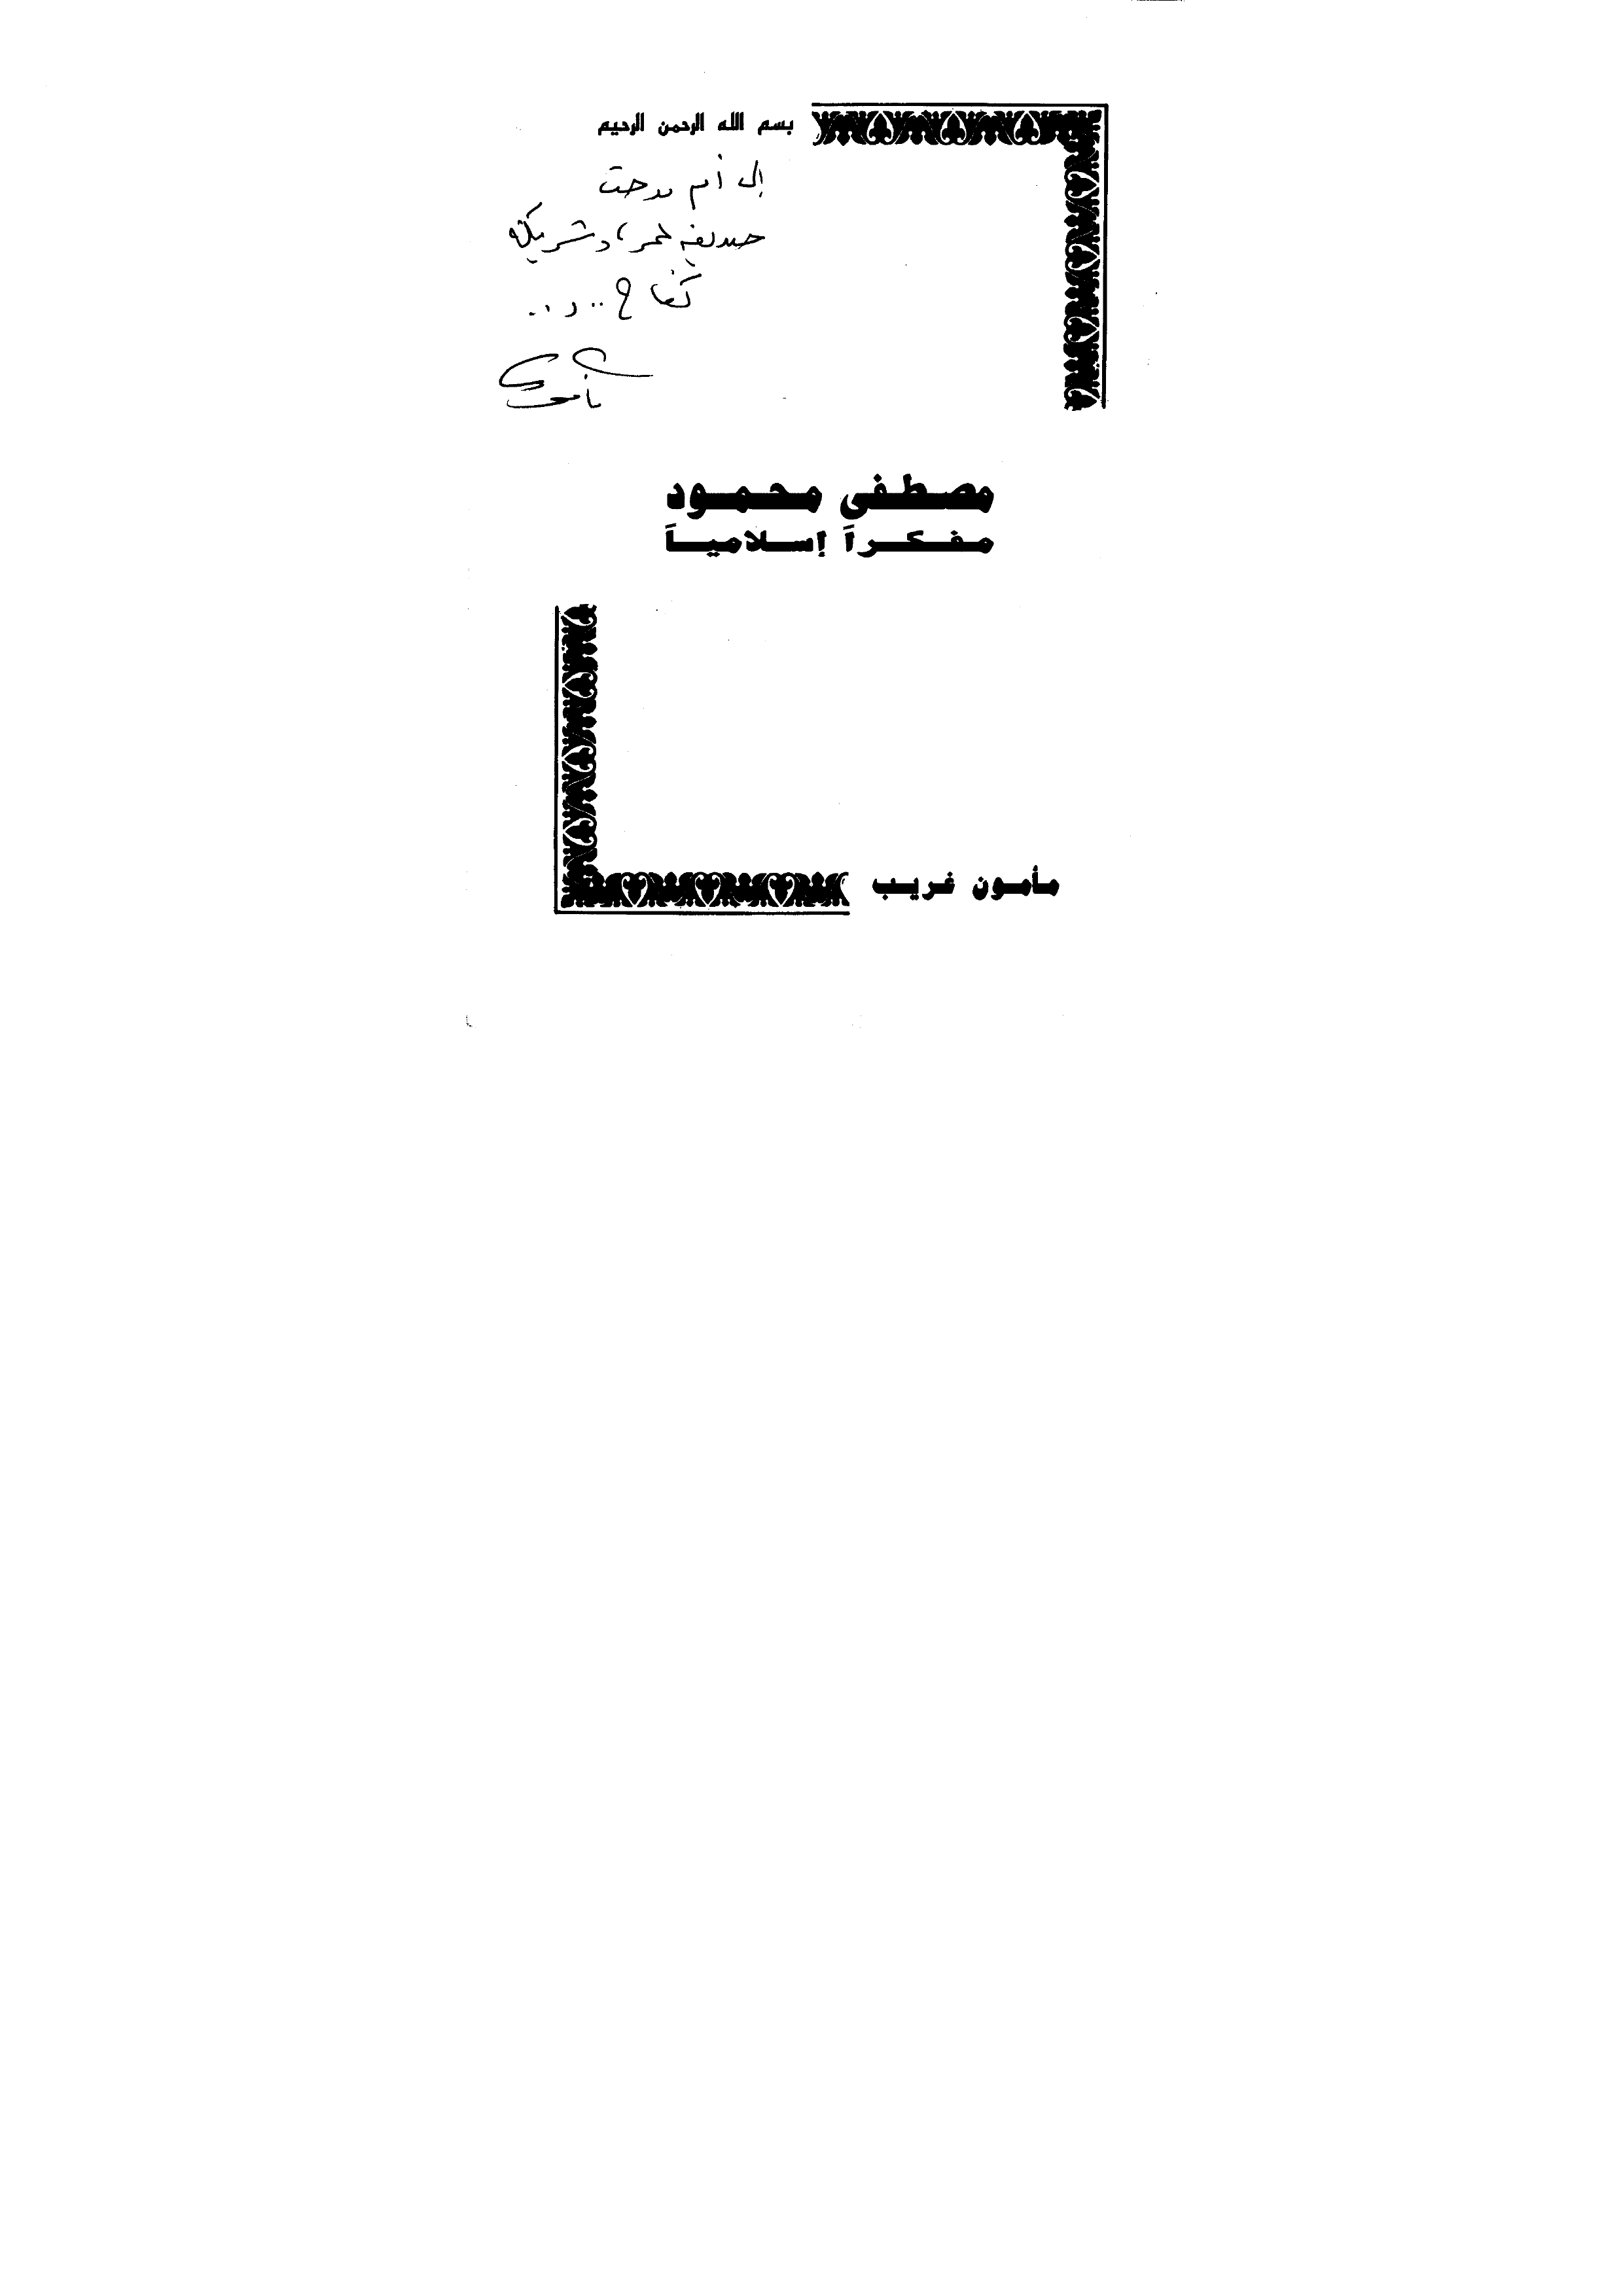 بسم الله الرحمن الرحيم
إلى أم مدحت
صديقة عمر، وشريكة
كفاح .. و ..
مأمون
مصطفى محمود
مفكراً إسلامياً
مأمون غريب